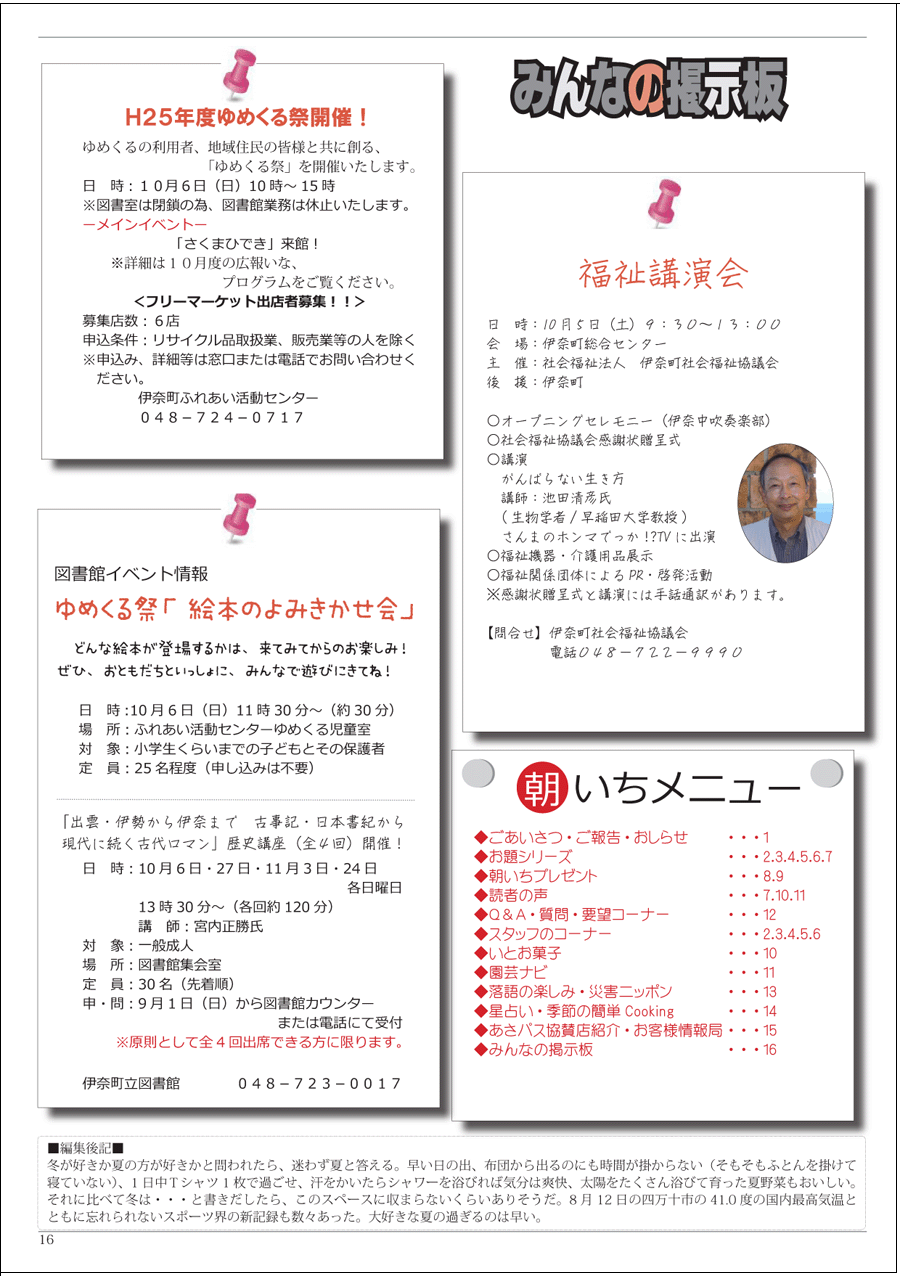 みんなの掲示板
H25年度ゆめくる祭開催！
ゆめくるの利用者、地域住民の皆様と共に創る、
「ゆめくる祭」を開催いたします。
日　時：１０月６日（日）10 時～ 15 時
※図書室は閉鎖の為、図書館業務は休止いたします。
ーメインイベントー
「さくまひでき」来館！
※詳細は１０月度の広報いな、
プログラムをご覧ください。
＜フリーマーケット出店者募集！！＞
募集店数：６店
申込条件：リサイクル品取扱業、販売業等の人を除く
※申込み、詳細等は窓口または電話でお問い合わせく
ださい。
伊奈町ふれあい活動センター
０４８－７２４－０７１７
図書館イベント情報
ゆめくる祭「 絵本のよみきかせ会」
どんな絵本が登場するかは、来てみてからのお楽しみ！
ぜひ、おともだちといっしょに、みんなで遊びにきてね！
日　時：10 月６日（日）11 時 30 分～（約 30 分）
場　所：ふれあい活動センターゆめくる児童室
対　象：小学生くらいまでの子どもとその保護者
定　員：25 名程度（申し込みは不要）
「出雲・伊勢から伊奈まで　古事記・日本書紀から
現代に続く古代ロマン」歴史講座（全４回）開催！
日　時：10 月６日・27 日・11 月３日・24 日
各日曜日
13 時 30 分～（各回約 120 分）
講　師：宮内正勝氏
対　象：一般成人
場　所：図書館集会室
定　員：30 名（先着順）
申・問：９月１日（日）から図書館カウンター
または電話にて受付
※原則として全４回出席できる方に限ります。
伊奈町立図書館　　　０４８－７２３－００１７
福祉講演会
日　時：10 月５日（土）９：３０～１３：００
会　場：伊奈町総合センター
主　催：社会福祉法人　伊奈町社会福祉協議会
後　援：伊奈町
○オープニングセレモニー（伊奈中吹奏楽部）
○社会福祉協議会感謝状贈呈式
○講演
がんばらない生き方
講師：池田清彦氏
（生物学者 / 早稲田大学教授）
さんまのホンマでっか !?TV に出演
○福祉機器・介護用品展示
○福祉関係団体による PR・啓発活動
※感謝状贈呈式と講演には手話通訳があります。
【問合せ】伊奈町社会福祉協議会
電話０４８－７２２－９９９０
朝いちメニュー
◆ごあいさつ・ご報告・おしらせ　・・・1
◆お題シリーズ　・・・2.3.4.5.6.7
◆朝いちプレゼント　・・・8.9
◆読者の声　・・・7.10.11
◆Ｑ＆Ａ・質問・要望コーナー　・・・12
◆スタッフのコーナー　・・・2.3.4.5.6
◆いとお菓子　・・・10
◆園芸ナビ　・・・11
◆落語の楽しみ・災害ニッポン　・・・13
◆星占い・季節の簡単 Cooking　・・・14
◆あさパス協賛店紹介・お客様情報局・・・15
◆みんなの掲示板　・・・16
■編集後記■
冬が好きか夏の方が好きかと問われたら、迷わず夏と答える。早い日の出、布団から出るのにも時間が掛からない（そもそもふとんを掛けて
寝ていない）、１日中Ｔシャツ１枚で過ごせ、汗をかいたらシャワーを浴びれば気分は爽快、太陽をたくさん浴びて育った夏野菜もおいしい。
それに比べて冬は・・・と書きだしたら、このスペースに収まらないくらいありそうだ。８月 12 日の四万十市の 41.0 度の国内最高気温と
ともに忘れられないスポーツ界の新記録も数々あった。大好きな夏の過ぎるのは早い。
16